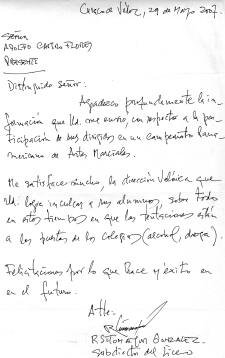 Curaco de Vélez, 29 de Mayo 2007.
SEÑOR
ADOLFO CASTRO FLORES
PRESENTE
Distinguido Señor:
Agradezco profundamente la in-
formación que Ud. me envió con respecto a la par-
ticipación de sus dirigidos en un campeonato Pana-
mericano de Artes Marciales.
Me satisface mucho, la dirección valórica que
Ud. logra inculcar a sus alumnos, sobre todo
en estos tiempos en que las tentaciones están
a las puertas de los colegios (alcohol, droga).
Felicitaciones por lo que hace y éxito en
en el futuro.
Atte.
GONZALEZ
Subdirector del Liceo